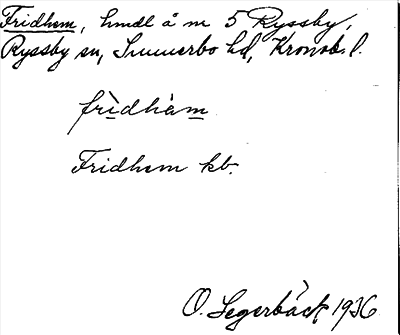 Fridhem, hmdl å m 5 Ryssby,
Ryssby sn, Sunnerbo hd, Kronob. l.
frìdhàm
Fridhem kb.
O. Segerbäck 1936